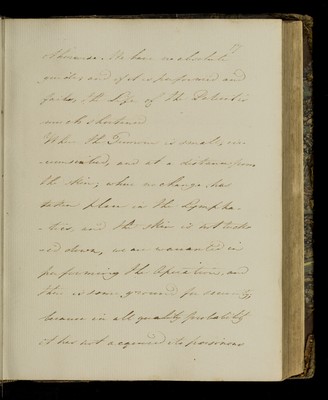 otherwise. We have no absolute
 and if it is performed and
fails, the Life of the Patient is
much shortened
When the Tumour is small, cir-
-cumscribed, and at a distance from
the skin; when no change has
taken place in the Lympha-
-tics, and the skin is not tuck-
-ed down, we are warranted in
performing the Operation, and
there is some ground for security,
because in all probability
it has not acquired its poisonous